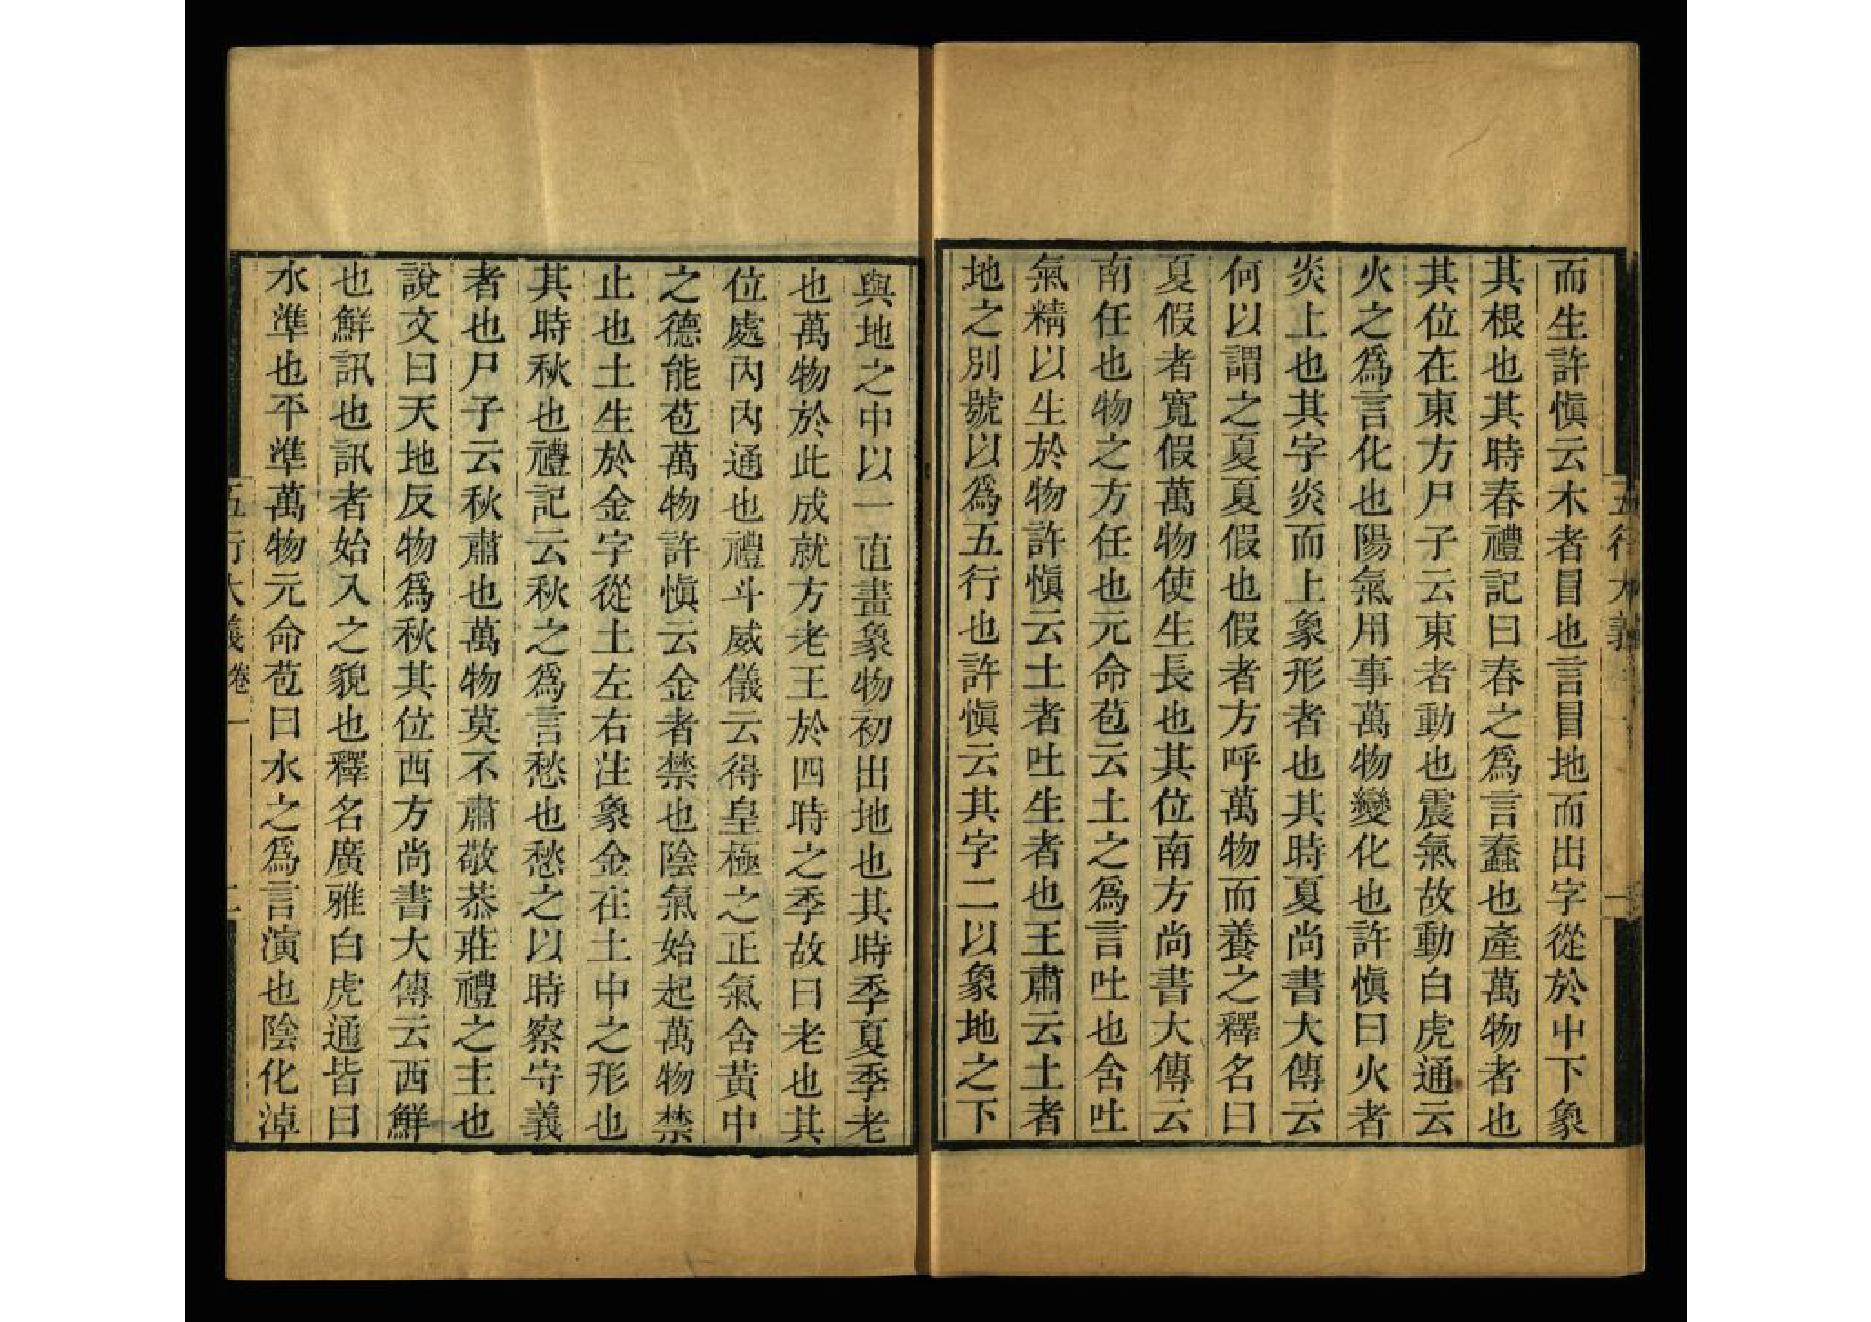 五行大義
而生許愼云木者冒也言冒地而出字從於屮下象
其根也其時春禮記曰春之爲言蠢也產萬物者也
其位在東方尸子云東者動也震氣故動白虎通云
火之爲言化也陽氣用事萬物變化也許愼曰火者
炎上也其字炎而上象形者也其時夏尚書大傳云
何以謂之夏夏假也假者方呼萬物而養之釋名曰
夏假者寬假萬物使生長也其位南方尚書大傳云
南任也物之方任也元命苞云土之爲言吐也含吐
氣精以生於物許愼云土者吐生者也王肅云土者
地之別號以爲五行也許愼云其字二以象地之下
與地之中以一直畫象物初出地也其時季夏季老
也萬物於此成就方老王於四時之季故曰老也其
位處內內通也禮斗威儀云得皇極之正氣含黃中
之德能苞萬物許愼云金者禁也陰氣始起萬物禁
止也土生於金字從土左右注象金在土中之形也
其時秋也禮記云秋之爲言愁也愁之以時察守義
者也尸子云秋肅也萬物莫不肅敬恭莊禮之主也
說文曰天地反物爲秋其位西方尚書大傳云西鮮
也鮮訊也訊者始入之貌也釋名廣雅白虎通皆曰
水準也平準萬物元命苞曰水之爲言演也陰化淖
五行大義 卷一 二